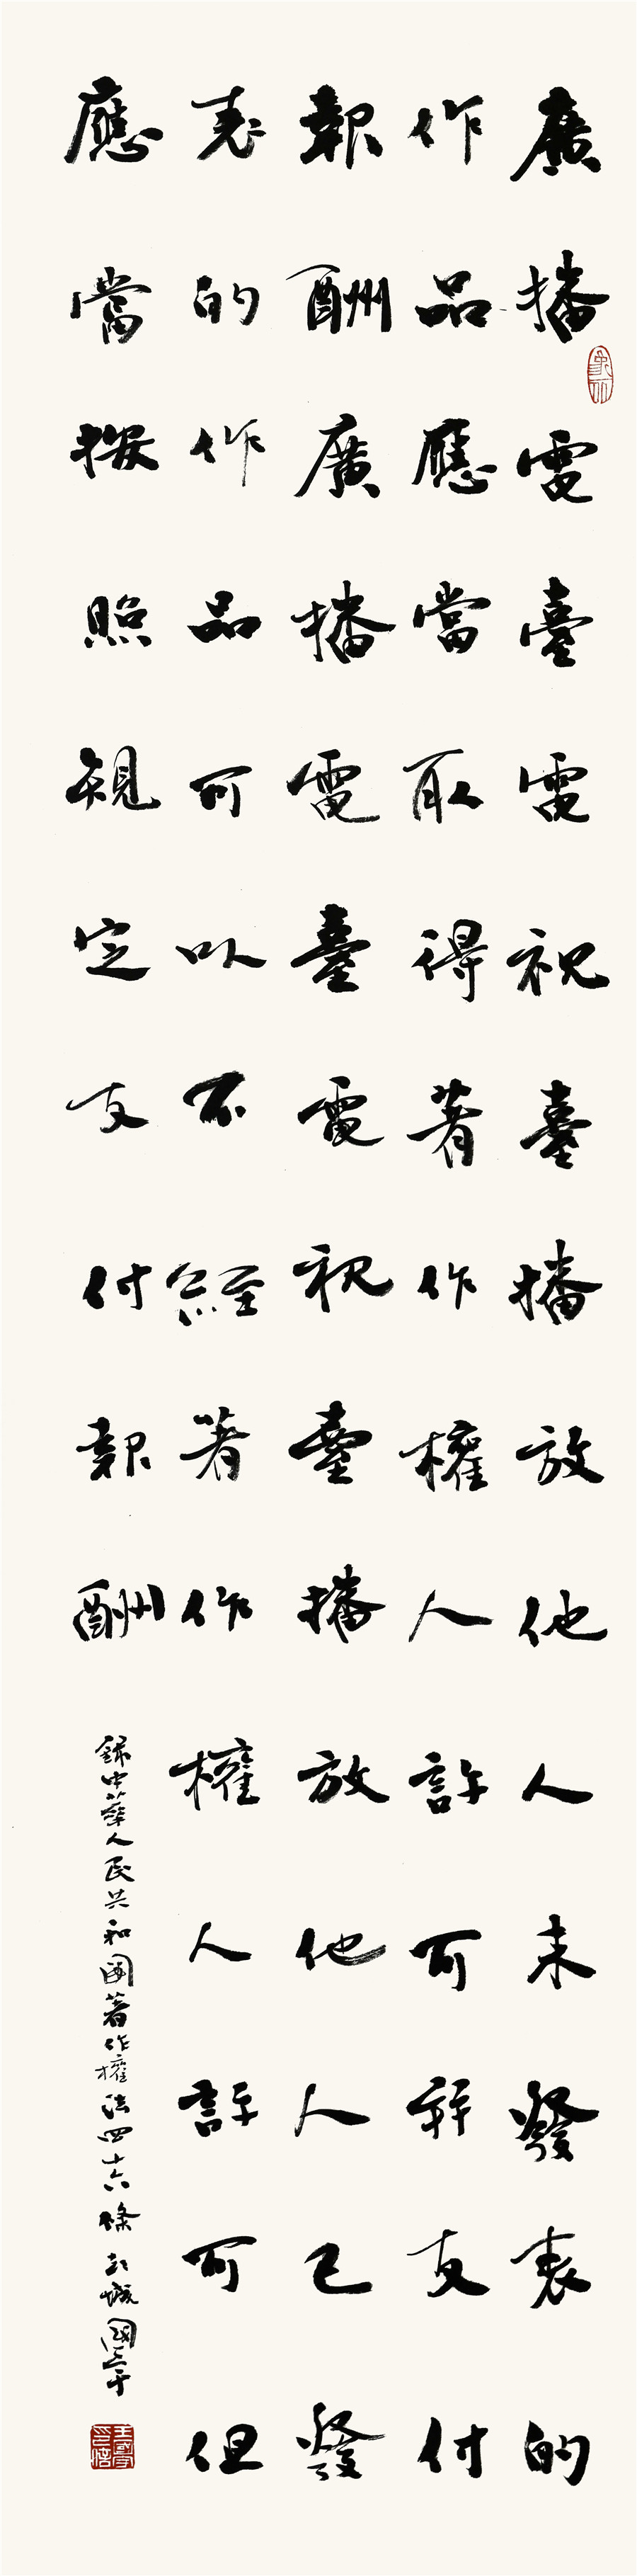 廣播電臺電視臺播放他人未發表的
作品應當取得著作權人許可并支付
報酬廣播電臺電視臺播放他人已發
表的作品可以不經著作權人許可但
應當按照規定支付報酬
錄中華人民共和國著作權法四十六條彭城國